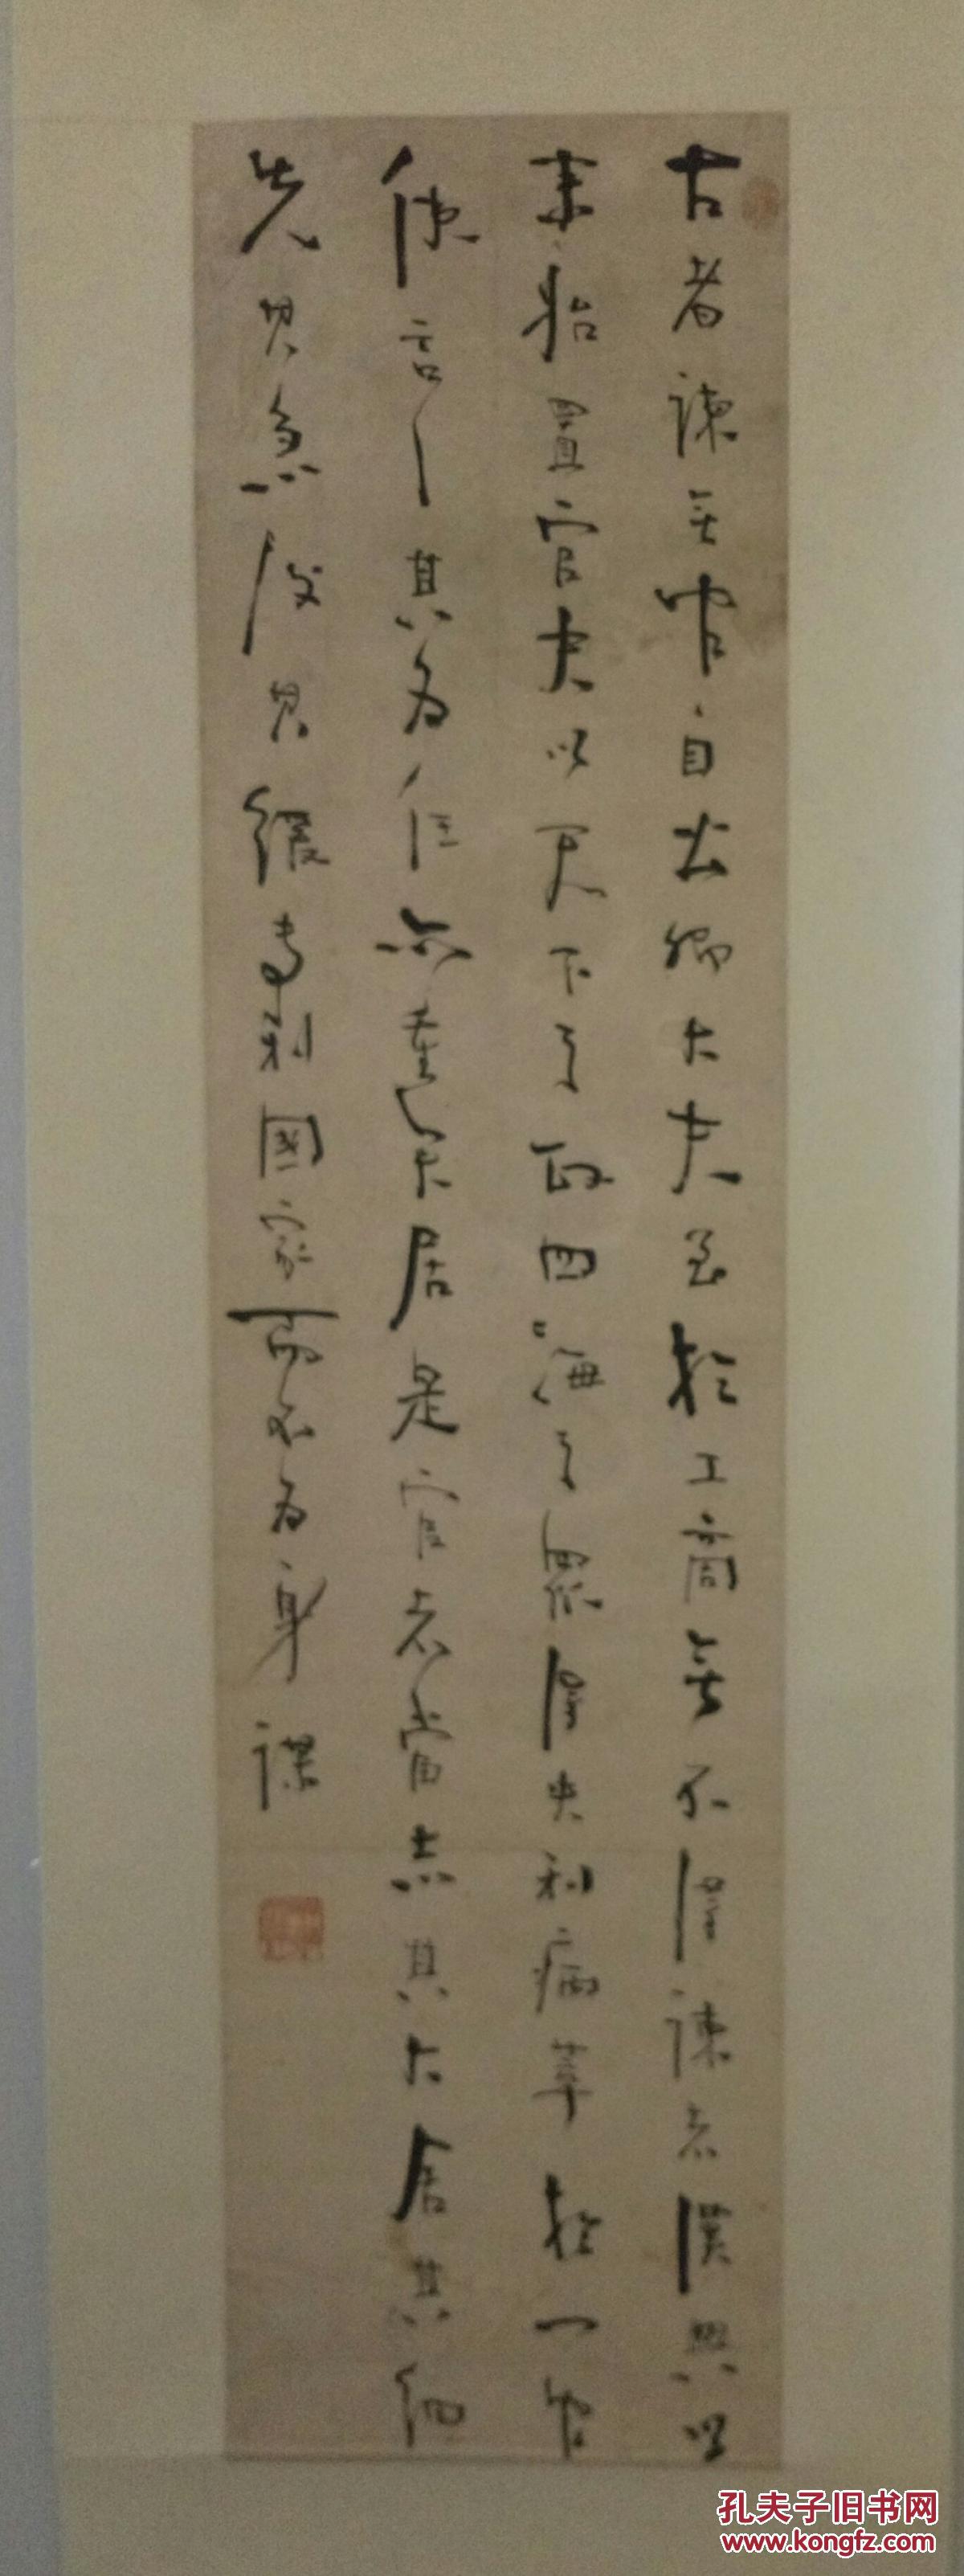 古者諫無官自公卿大夫至於工商無不得諫者漢興以
来始置官夫以天下之政四海之衆得失利病萃於一官
使言之其為任亦重矣居是官者當志其大舍其細
先其急後其緩專利國家而不為身謀
孔夫子旧书网
www.kongfz.com